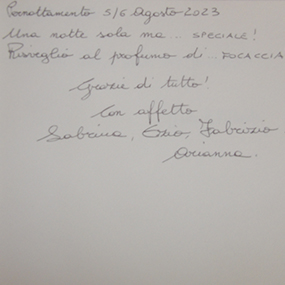 Pernottamento 5/6 Agosto 2023
Una notte sola ma... SPECIALE!
Risveglio al profumo di... FOCACCIA
Grazie di tutto!
Con affetto
Sabrina, Ezio, Fabrizio
Arianna.